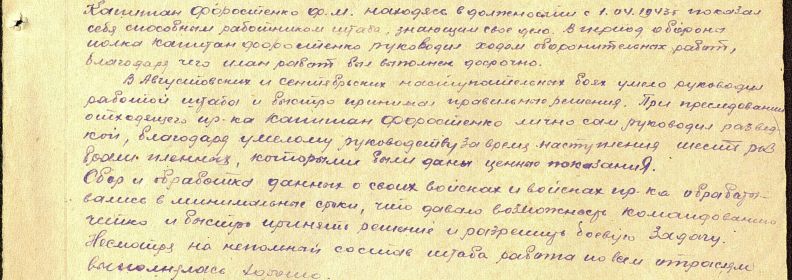 Капитан Форостенко Ф.М. находясь в должности с 1.04.1943г показал
себя способным работником штаба, знающим свое дело. В период обороны
полка капитан Форостенко руководил ходом оборонительных работ,
благодаря чего план работ был выполнен досрочно.
В Августовских и сентябрьских наступательных боях умело руководил
работой штаба и быстро принимал правильные решения. При преследовании
отходящего пр-ка капитан Форостенко лично сам руководил развед-
кой, благодаря умелому руководству за время наступления шесть раз
брали пленных, которыми были даны ценные показания.
Сбор и обработка данных о своих войсках и войсках пр-ка обрабаты-
вались в минимальные сроки, что давало возможность командованию
четко и быстро принять решение и разрешить боевую задачу.
Несмотря на неполный состав штаба работа по всем отраслям
выполнялась хорошо.